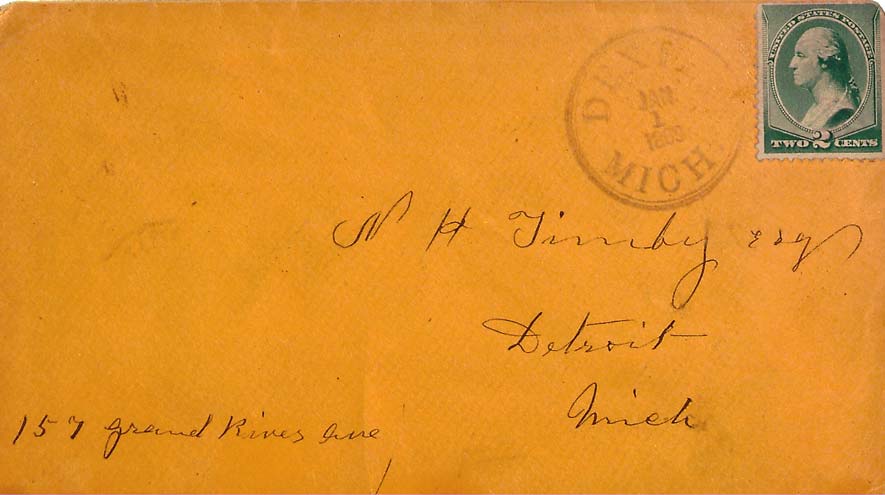 UNITED STATES POSTAGE
TWO 2 CENTS
JAN
1
MICH
N H Timby Esq
Detroit
Mich
157 grand River ave